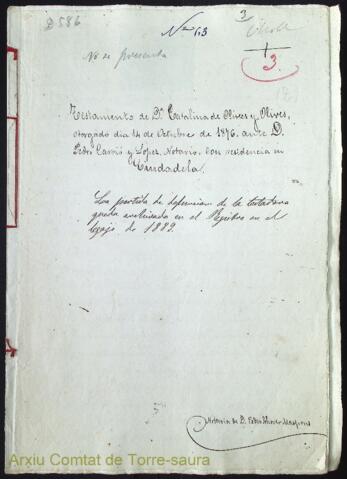 D 586
Nº 13
3
3.
No se presenta
Testamento de Dª Catalina de Olives y Olives,
otorgado dia 14 de Octubre de 1876, ante D.
Pedro Carrió y López, Notario, con residencia en
Ciudadela.
La partida de defuncion de la testadora
queda archivada en el Registro en el
legajo de 1889.
Notaria de D.
Arxiu Comtat de Torre-saura